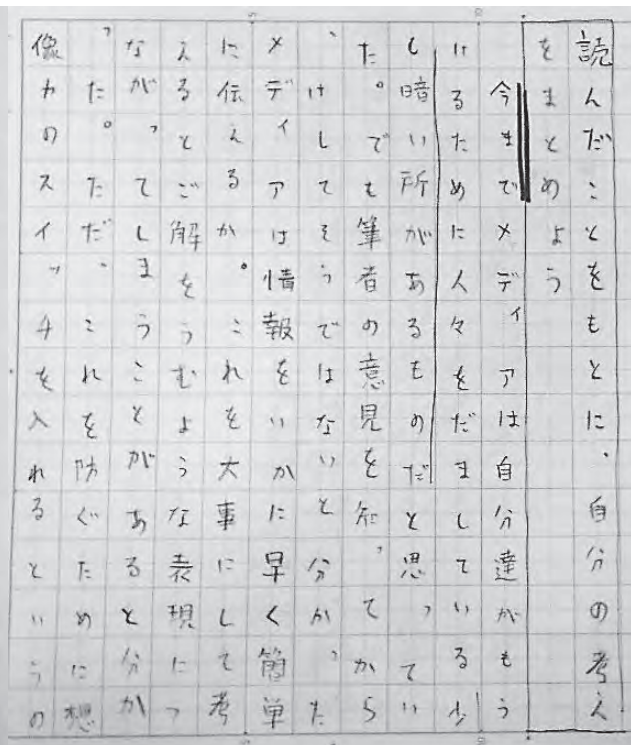 読んだことをもとに、自分の考え
をまとめよう
今までメディアは自分達がもう
けるために人々をだましている少
し暗い所があるものだと思ってい
た。でも筆者の意見を知ってから
、けしてそうではないと分かった
メディアは情報をいかに早く簡単
に伝えるか。これを大事にして考
えるとご解をうむような表現につ
ながってしまうことがあると分か
った。ただ、これを防ぐために想
像力のスイッチを入れるというの